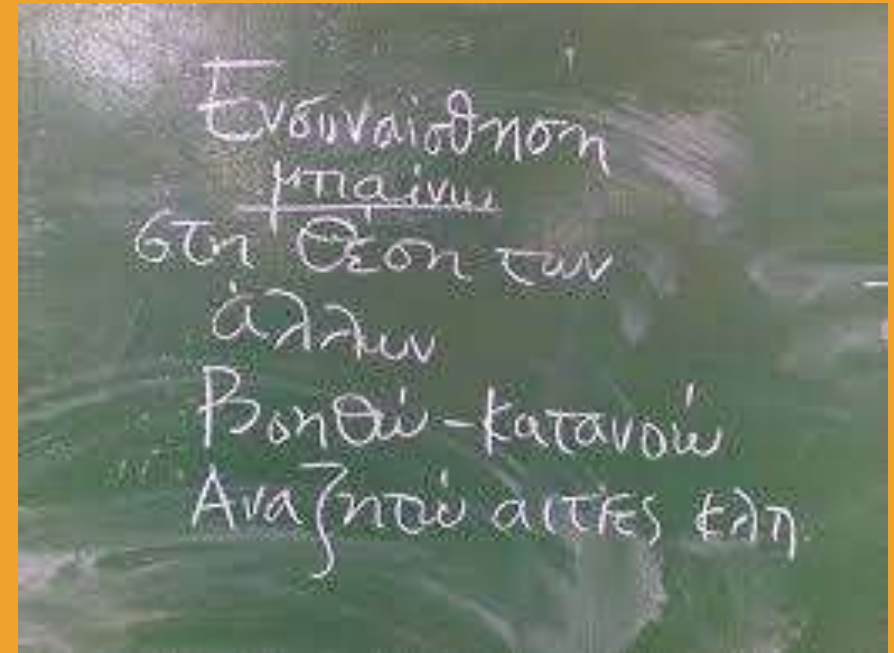 Ενσυναίσθηση
μπαίνω
στη θέση των
άλλων
Βοηθώ-κατανοώ
Αναζητώ αιτίες κλπ